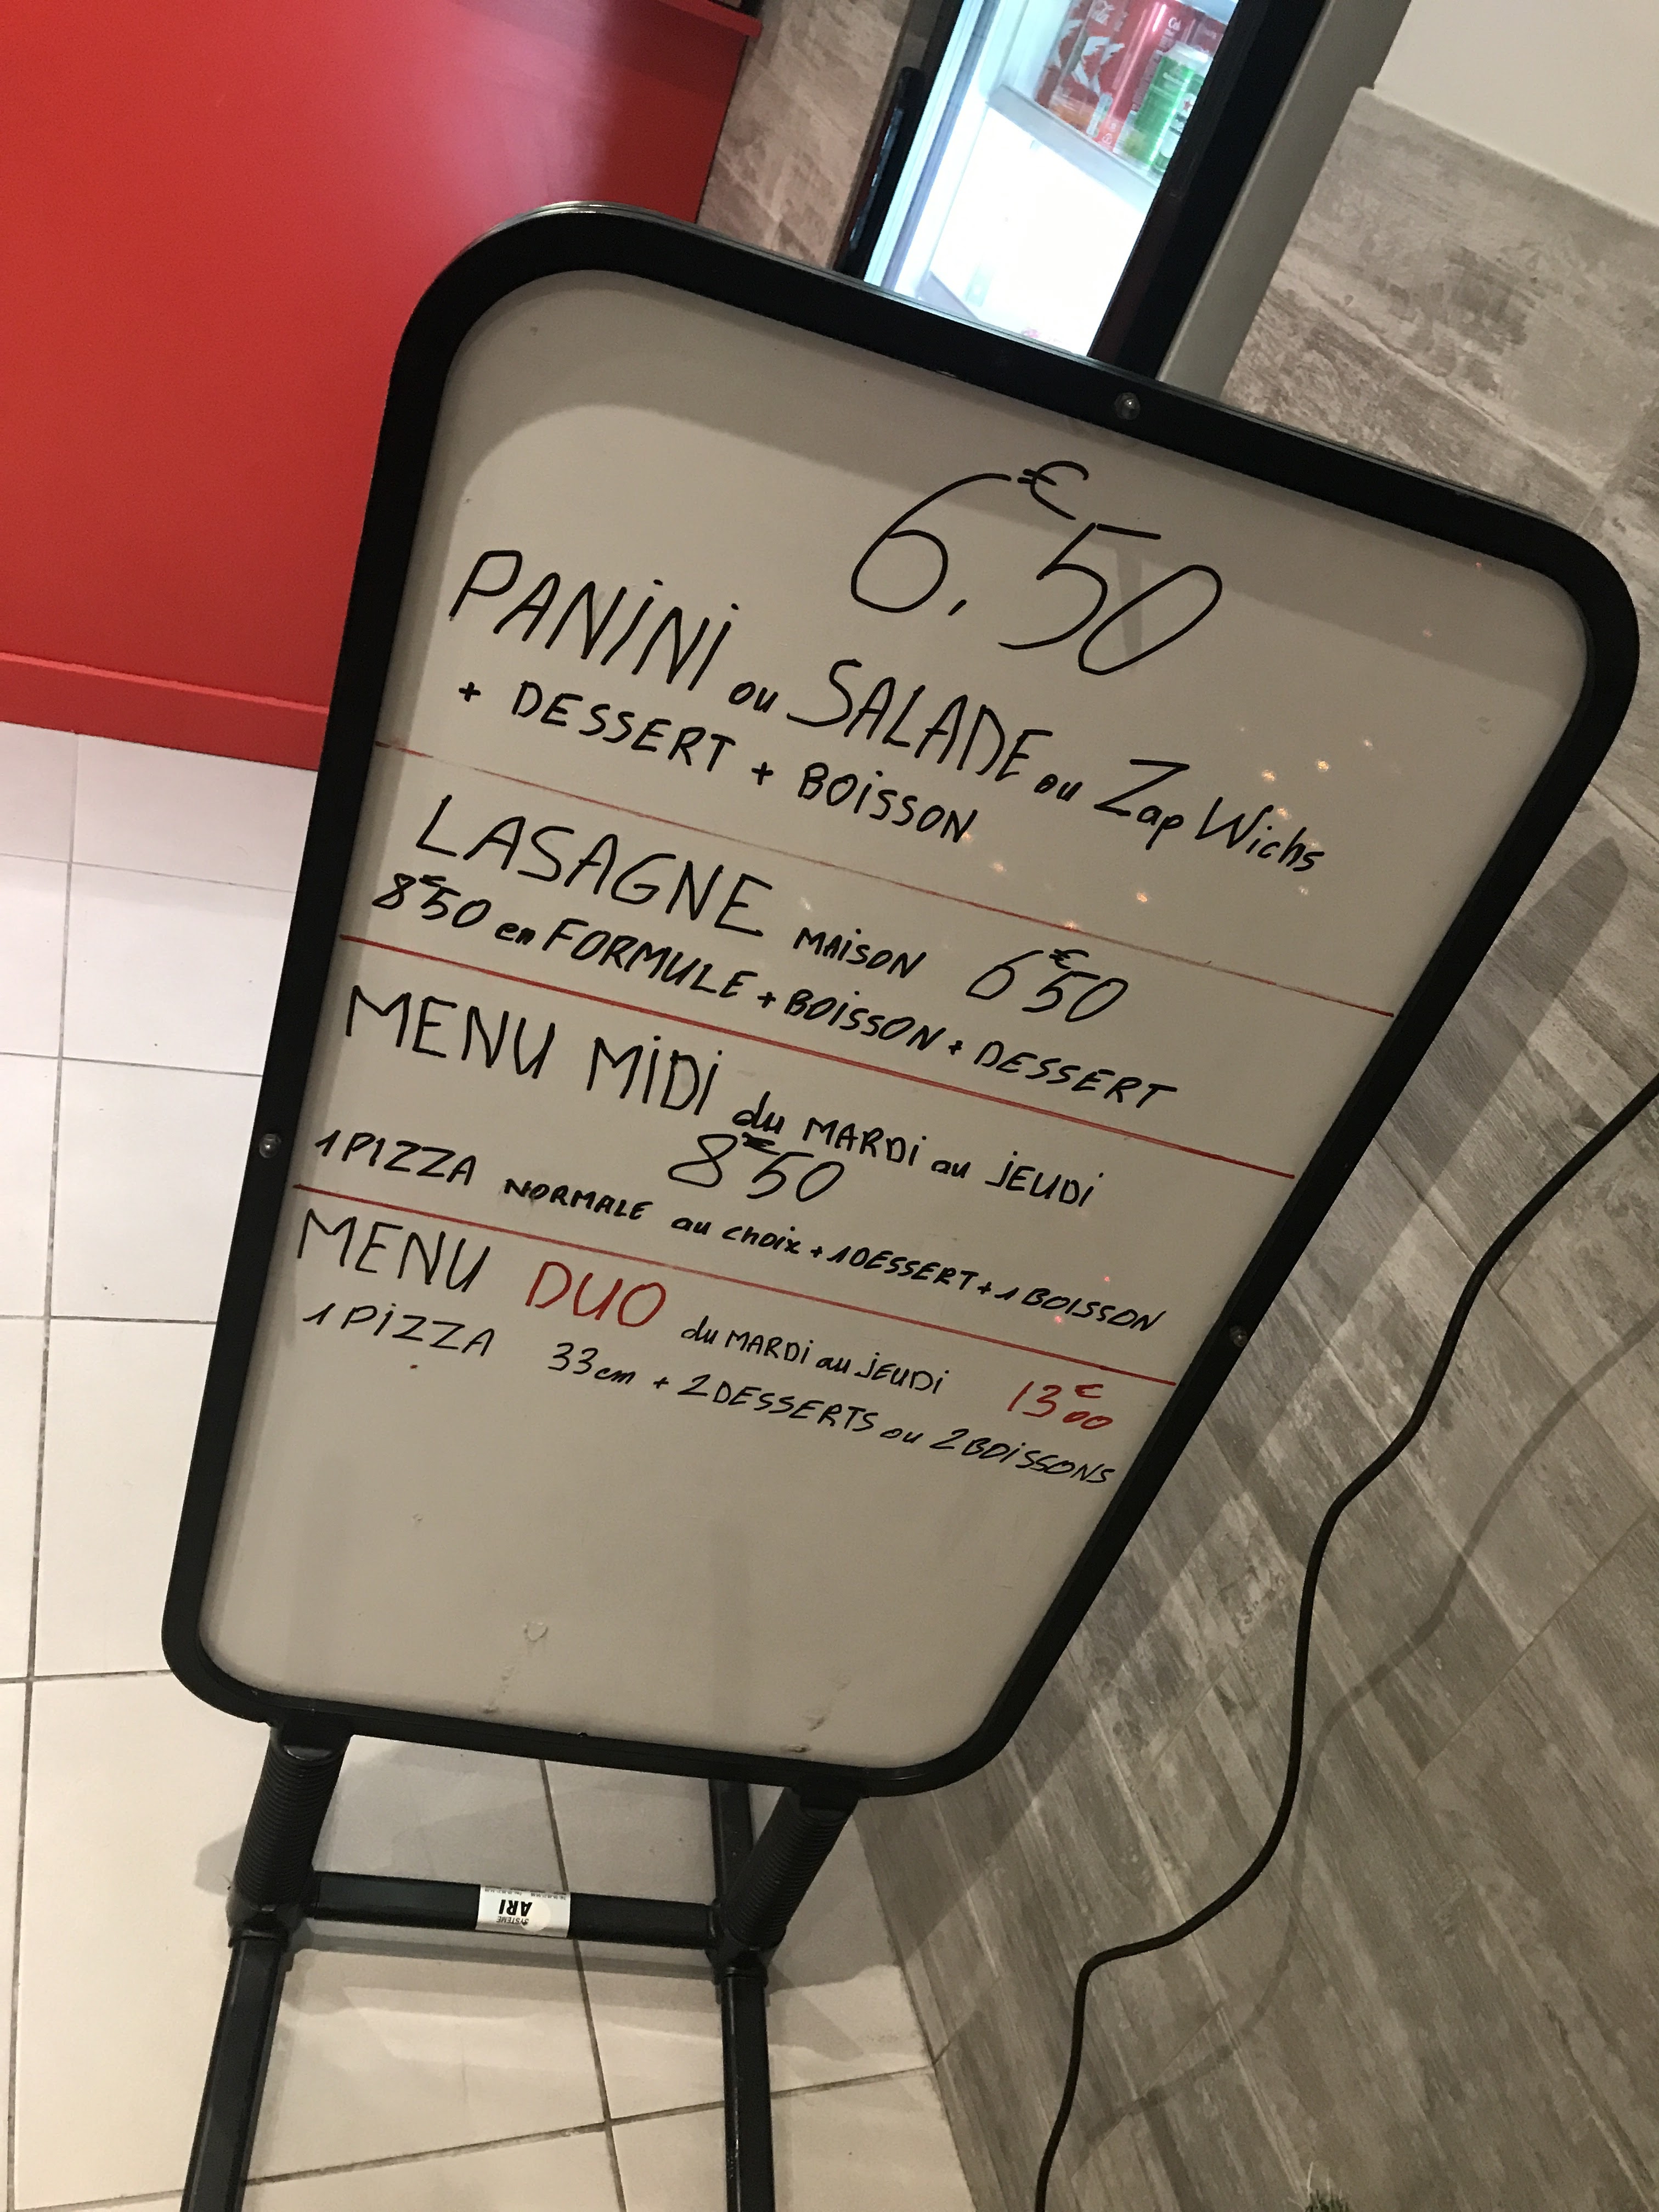 6,€50
PANiNi ou SALADE ou Zap Wichs
+ DESSERT + BOiSSON
LASAGNE MAiSON 6€50
8€50 en FORMULE + BOiSSON + DESSERT
MENU MiDi du MARDi au jEUDi
8€50
1 PIZZA NORMALE au choix + 1 DESSERT + 1 BOISSON
MENU DUO du MARDi au jEUDi 13€00
1 PiZZA 33cm + 2 DESSERTS ou 2 BOiSSONS
SYSTEME
ARI